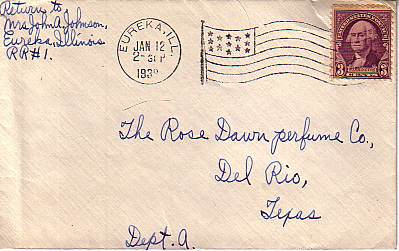 Return to,
Mrs John A. Johnson,
Eureka, Illinois
R R #1.
EUREKA, ILL.
JAN 12
2-30 P
3 3
The Rose Dawn perfume Co.,
Del Rio,
Texas
Dept. A.